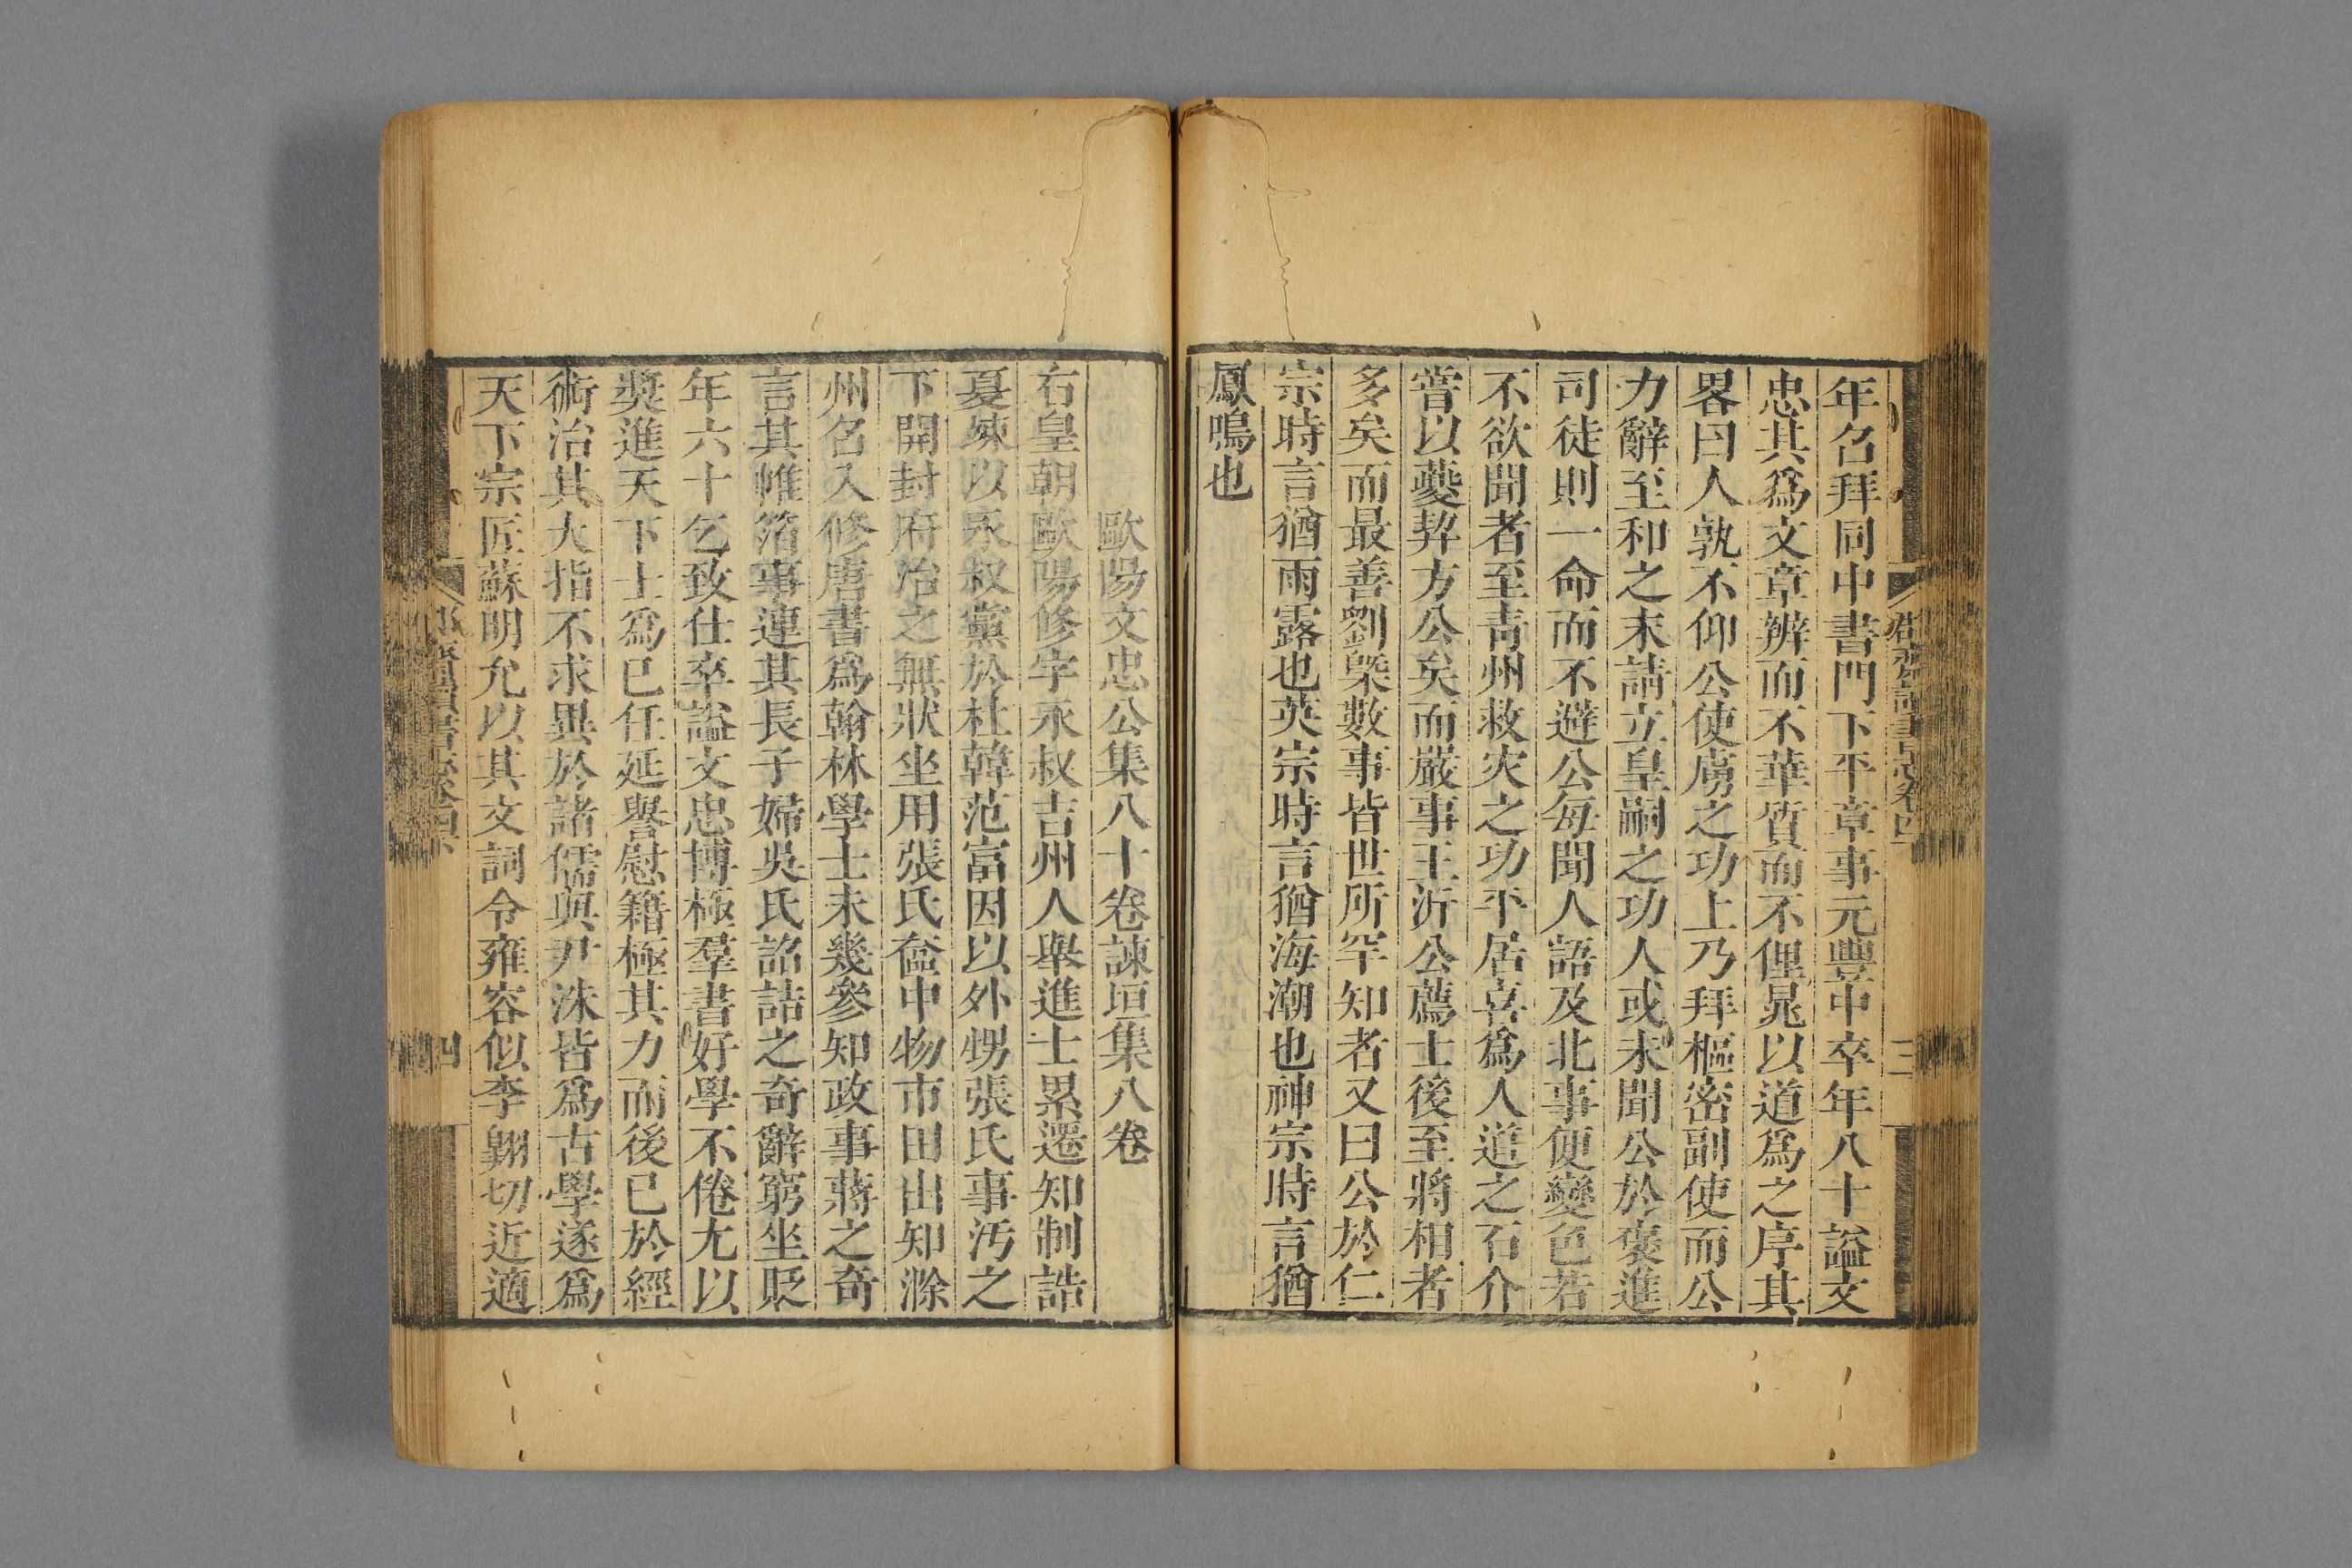 年名拜同中書門下平章事元豐中卒年八十謚文
忠其爲文章辨而不華質而不俚晁以道爲之序其
畧曰人孰不仰公使虜之功上乃拜樞密副使而公
力辭至和之末請立皇嗣之功人或未聞公於褒進
司徒則一命而不避公每聞人語及北事便變色若
不欲聞者至青州救灾之功平居喜爲人道之石介
嘗以夔契方公矣而嚴事王沂公薦士後至將相者
多矣而最善劉槩數事皆世所罕知者又曰公於仁
宗時言猶雨露也英宗時言猶海潮也神宗時言猶
鳳鳴也
歐陽文忠公集八十卷諫垣集八卷
右皇朝歐陽修字永叔吉州人舉進士累遷知制誥
夏竦以永叔黨於杜韓范富因以外甥張氏事污之
下開封府治之無狀坐用張氏奩中物市田出知滁
州名入修唐書爲翰林學士未幾參知政事蔣之奇
言其帷箔事連其長子婦吳氏詔詰之奇辭窮坐貶
年六十乞致仕卒謚文忠博極羣書好學不倦尤以
奬進天下士爲已任延譽慰籍極其力而後已於經
術治其大指不求異於諸儒與尹洙皆爲古學遂爲
天下宗匠蘇明允以其文詞令雍容似李翱切近適
四